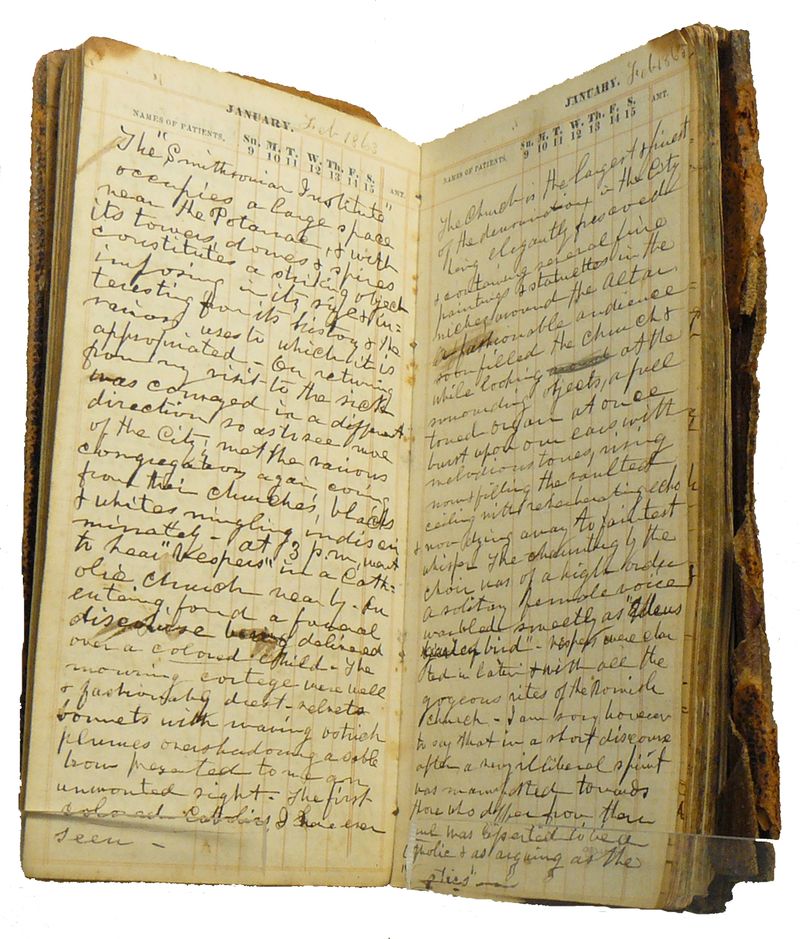 JANUARY. Feb 1863
NAMES OF PATIENTS. Su. M. T. W. Th. F. S. AMT.
9 10 11 12 13 14 15
The "Smithsonian Institute
occupies a large space
near the Potamac, & with
its towers, domes & spires
constitutes a striking object
imposing in its size & in-
teresting for its history & the
various uses to which it is
appropriated - On returning
from my visit to the sick
was conveyed in a different
direction so as to see more
of the City, met the various
congregations again coming
from their churches, blacks
& whites mingling indiscri
minately - at 3 p.m, went
to hear "Vespers" in a Cath-
olic church near by - On
entering, found a funeral
discourse being delivered
over a colored child - The
mourning cortege were well
& fashionably drest - velvets
bonnets with waving ostrich
plumes overshadowing a sable
brow presented to me an
unwonted sight - The first
colored Catholics I have ever
seen -
JANUARY. Feb 1863
NAMES OF PATIENTS. Su. M. T. W. Th. F. S. AMT.
9 10 11 12 13 14 15
The Church is the largest & finest
of the denomination in the City
being elegantly frescoed
& containing several fine
paintings & statuettes in the
niches around the Altar
a fashionable audience
soon filled the church &
while looking at the
surrounding objects, a full
toned organ at once
burst upon our ears with
melodious tones, rising
now & filling the vaulted
ceiling with reverberating echo
& now dying away to faintest
whisper The chaunting by the
choir was of a high order
a solitary female voice
warbled sweetly as
bird" - Vespers were chan
ted in latin & with all the
gorgeous rites of the Romish
Church - I am sorry however
to say that in a short discourse
after a very illiberal spirit
was manifested towards
those who differ from them
was asserted to be a
& as arguing as the